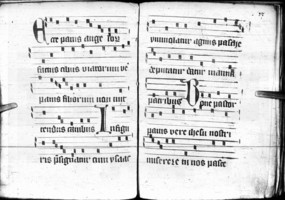 Ecce panis ange lor
factus cibus viatorum ve
panis filiorum non mit
tendus canibus In figu
ris psignatur cum ysaac
ymmolatur agnus pasche
deputatur datur manna
patribus Bone pastor
panis vere ihesu nostri
miserere nos pasce